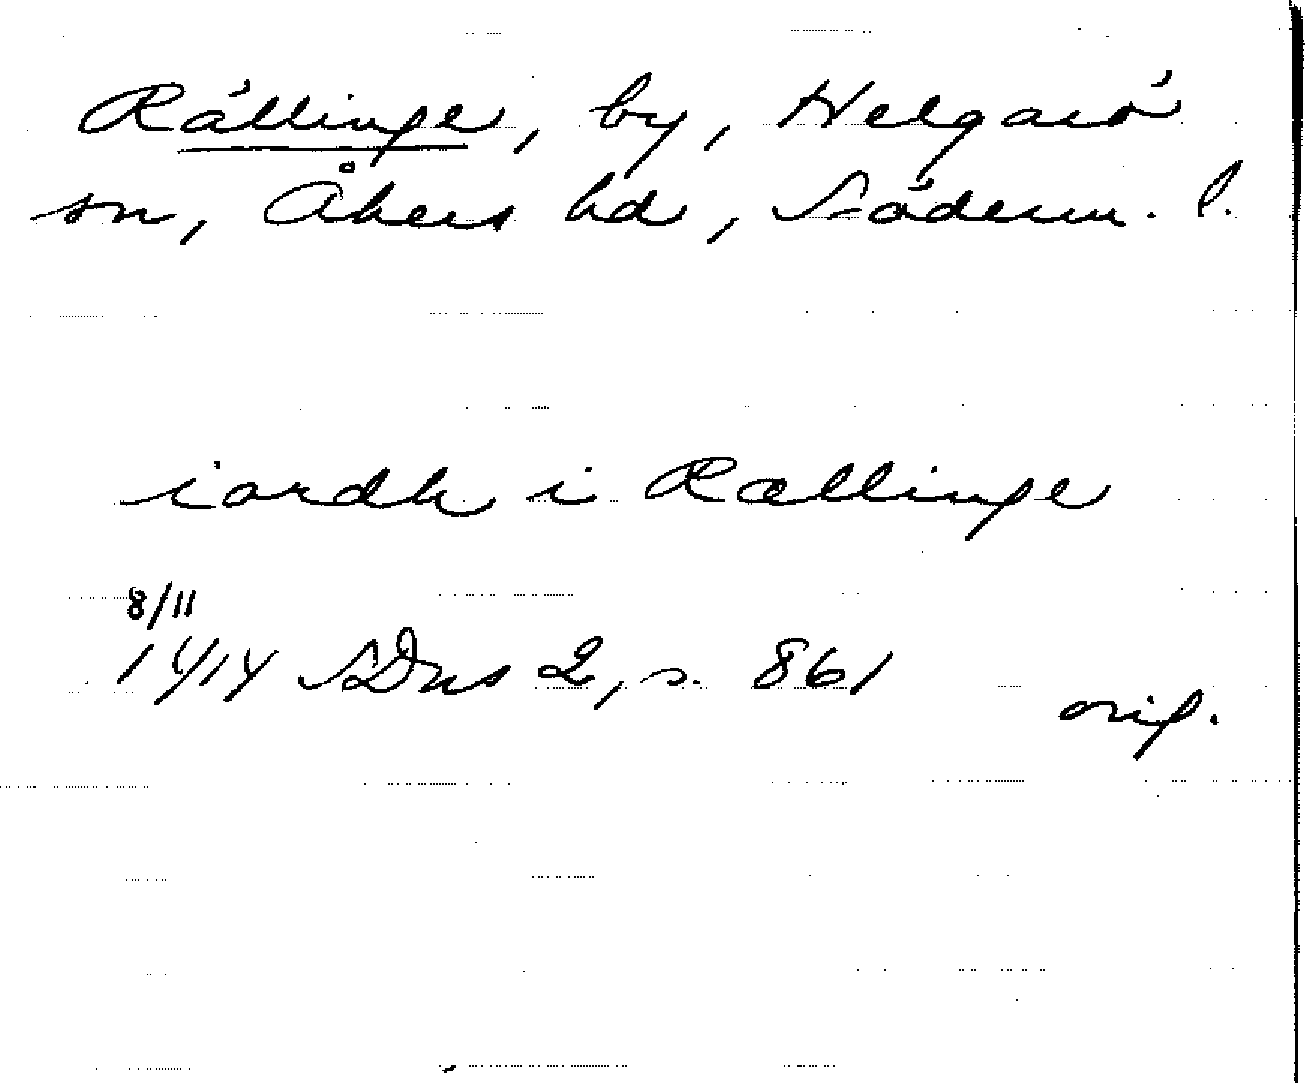 Rällinge, by, Helgarö
sn, Åkers hd, Söderm. l.
iordh i Rællinge
8/11
1414 SDns 2, s. 861
orig.